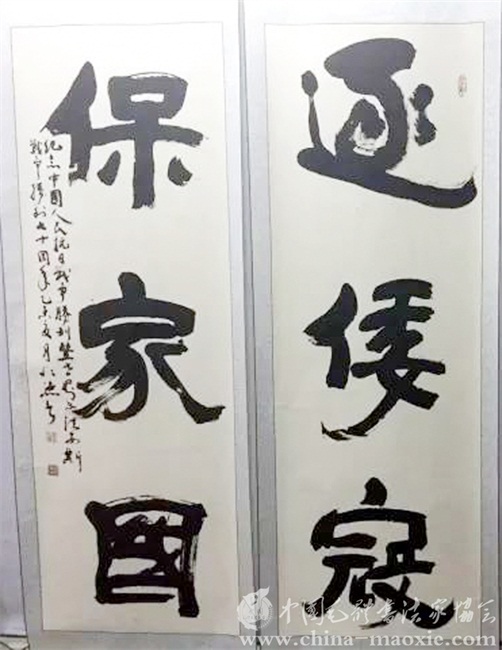 逐倭寇
保家國
纪念中國人民抗日战争勝利暨世界反法西斯
战争勝利七十周年乙未夏月
中国毛体书法家協会
www.china-maoxie.com